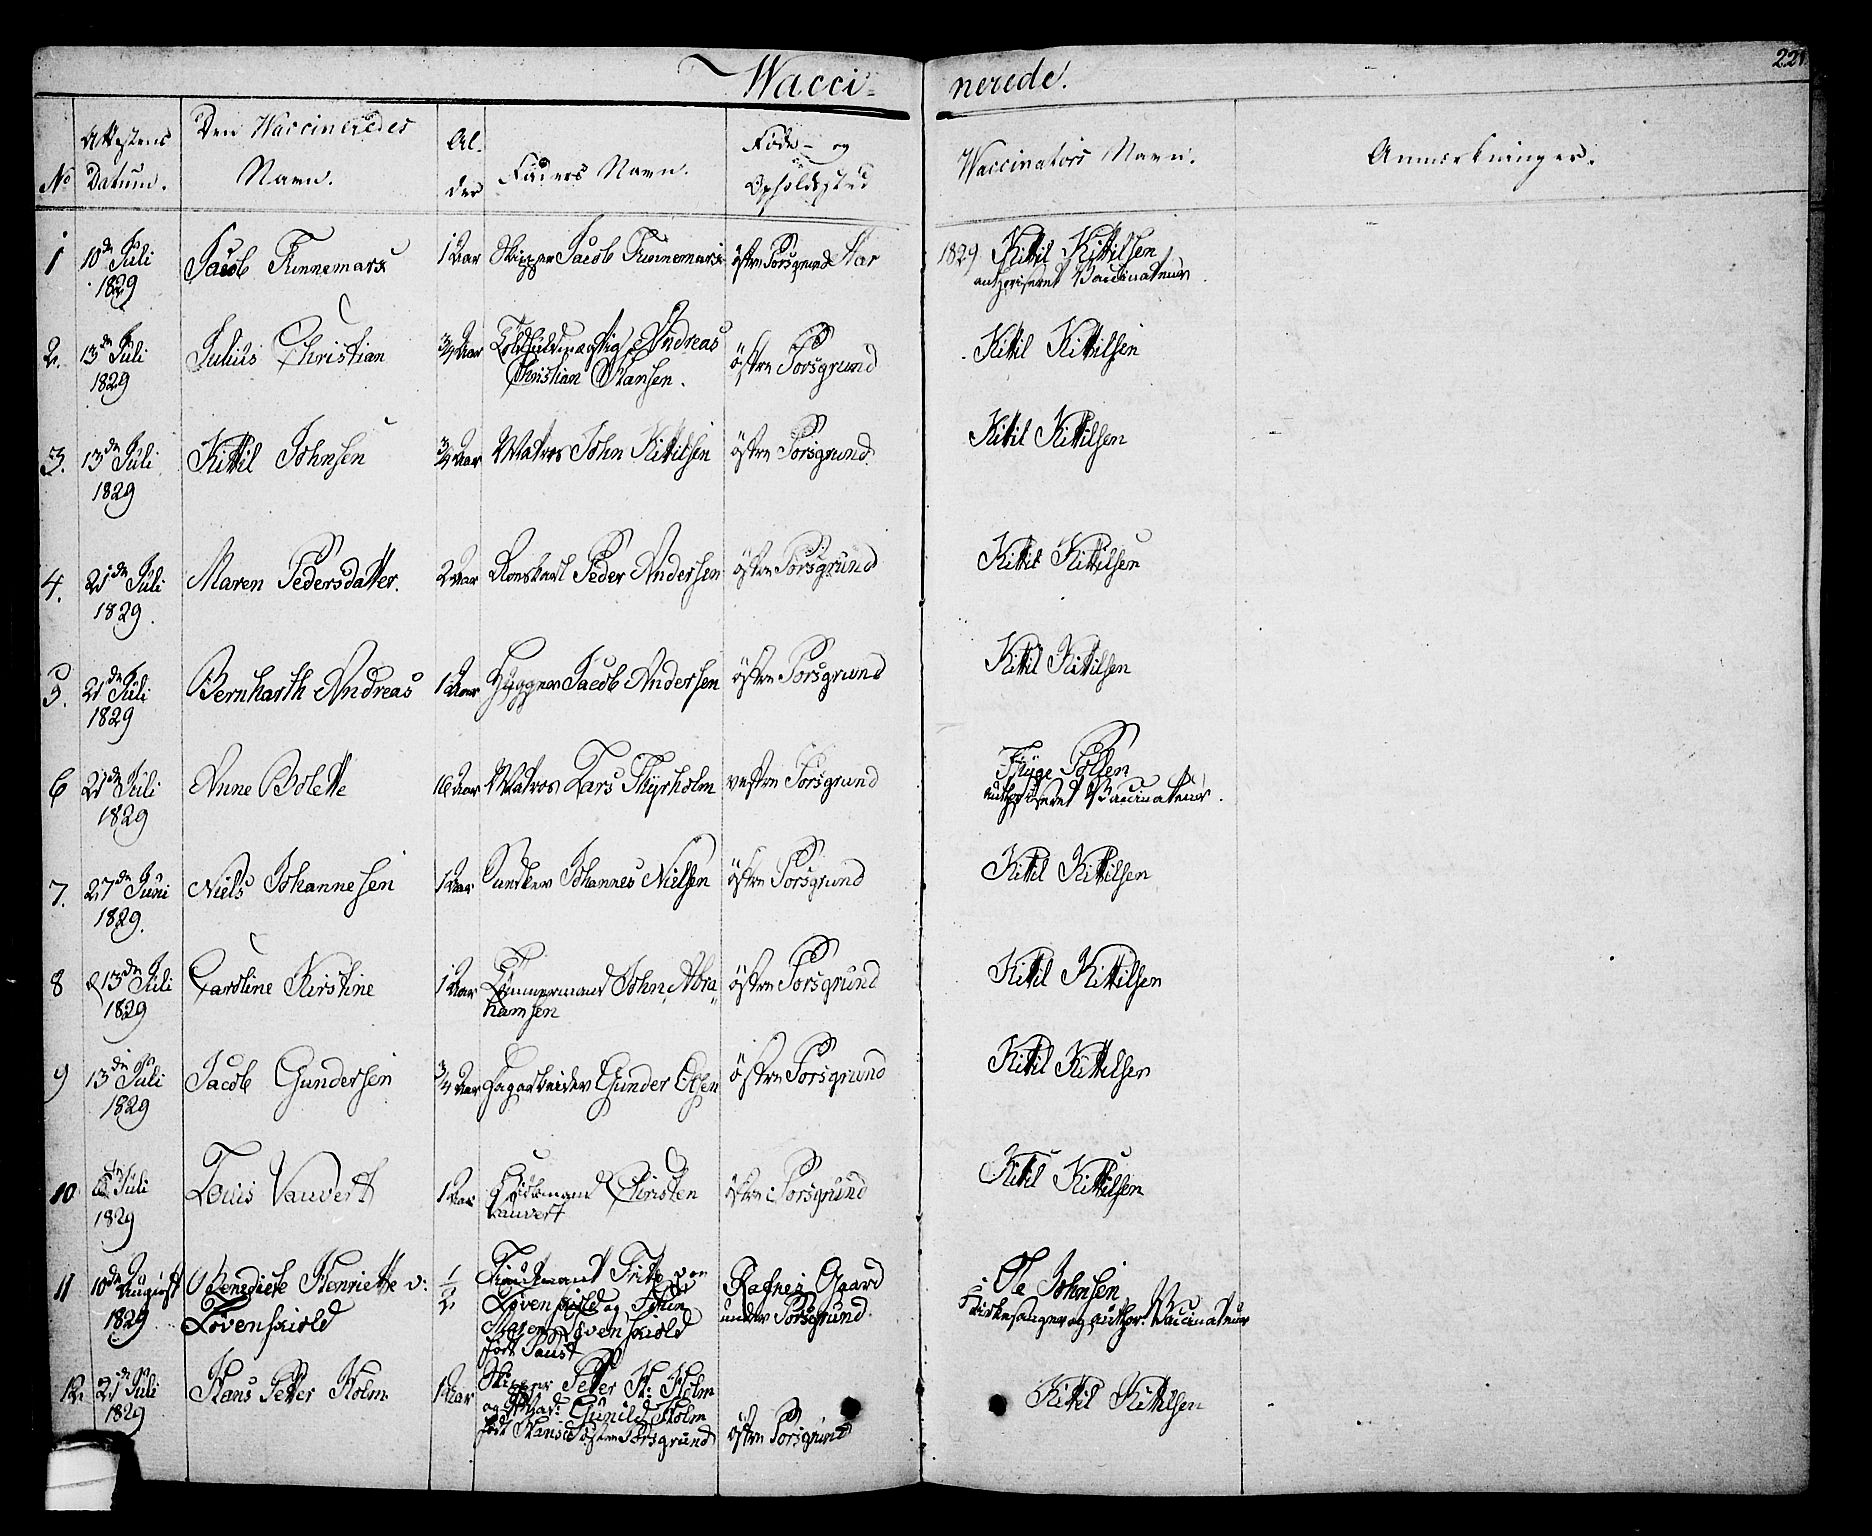 Wacci- nerede.
221
No
Attestens Datum.
Den Waccineredes Navn.
Al- der
Faders Navn.
Føde- og Opholdssted
Waccinators Navn.
Anmærkninger.
1 10de Juli Jacob Flinnemarx 1 Aar Skipper Jacob Flinnemarx østre Porsgrund 1829 Kittil Kittilsen
1829 authoriseret Vaccinateur.
2. 13de Juli Julius Christian 3/4 Aar Andreas østre Porsgrund Kittil Kittilsen
1829 Christian Hansen.
3. 13de Juli Kittil Johnsen 3/4 Aar Matros John Kittilsen østre Porsgrund. Kittil Kittilsen
1829
4. 21de Juli Maren Pedersdatter. 2 Aar Peder Andersen østre Porsgrund Kittil Kittilsen
1829.
5. 21de Juli Bernharth Andreas 1 Aar Hugger Jacob Andersen østre Porsgrund Kittil Kittilsen
1829
6 21de Juli Anne Bolette Aar Matros Lars Thyrholm vestre Porsgrund
1829 authoriseret Vaccinateur.
7. 27de Juni Niels Johannesen 1 Aar Johannes Nielsen østre Porsgrund Kittil Kittilsen
1829.
8 13de Juli Caroline Kirstine 1 Aar Tømmermand John Abra- østre Porsgrund Kittil Kittilsen
1829 hamsen
9 13de Juli Jacob Gundersen 3/4 Aar Dagarbeider Gunder Olsen østre Porsgrund Kittil Kittilsen
1829
10 Juli Louis Vauvert 1 Aar Christen østre Porsgrund Kittil Kittilsen
1829 Vauvert
11 10de August Benedicte Henriette v: 1/2 Fritz von Rafnes Gaard Ole Johnsen
1829 Løvenskiold Løvenskiold og under Porsgrund. Kirkesanger og author. Vaccinateur
Løvenskiold
født
12. 21de Juli Hans Petter Holm 1 Aar Skipper Petter H: Holm Kittil Kittilsen
1829 og Mad: Gunild Holm
født Hansd østre Porsgrund østre Porsgrund